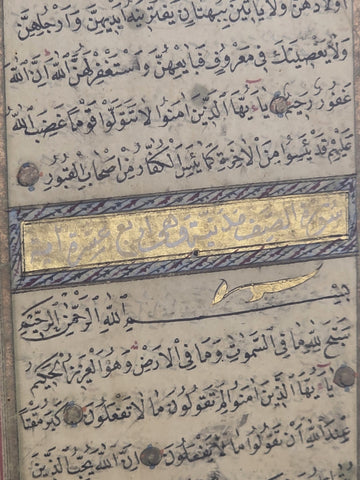 اولادهن ولا يأتين ببهتان يفترينه بين ايديهن وارجلهن
ولا يعصينك في معروف فبايعهن واستغفر لهن الله ان الله
غفور رحيم يا ايها الذين امنوا لا تتولوا قوما غضب الله
عليهم قد يئسوا من الاخرة كما يئس الكفار من اصحاب القبور
سورة الصف مدنية وهى اربع عشرة آية
بسم الله الرحمن الرحيم
سبح لله ما في السموات وما في الارض وهو العزيز الحكيم
يا ايها الذين امنوا لم تقولون ما لا تفعلون كبر مقتا
عند الله ان تقولوا ما لا تفعلون ان الله يحب الذين